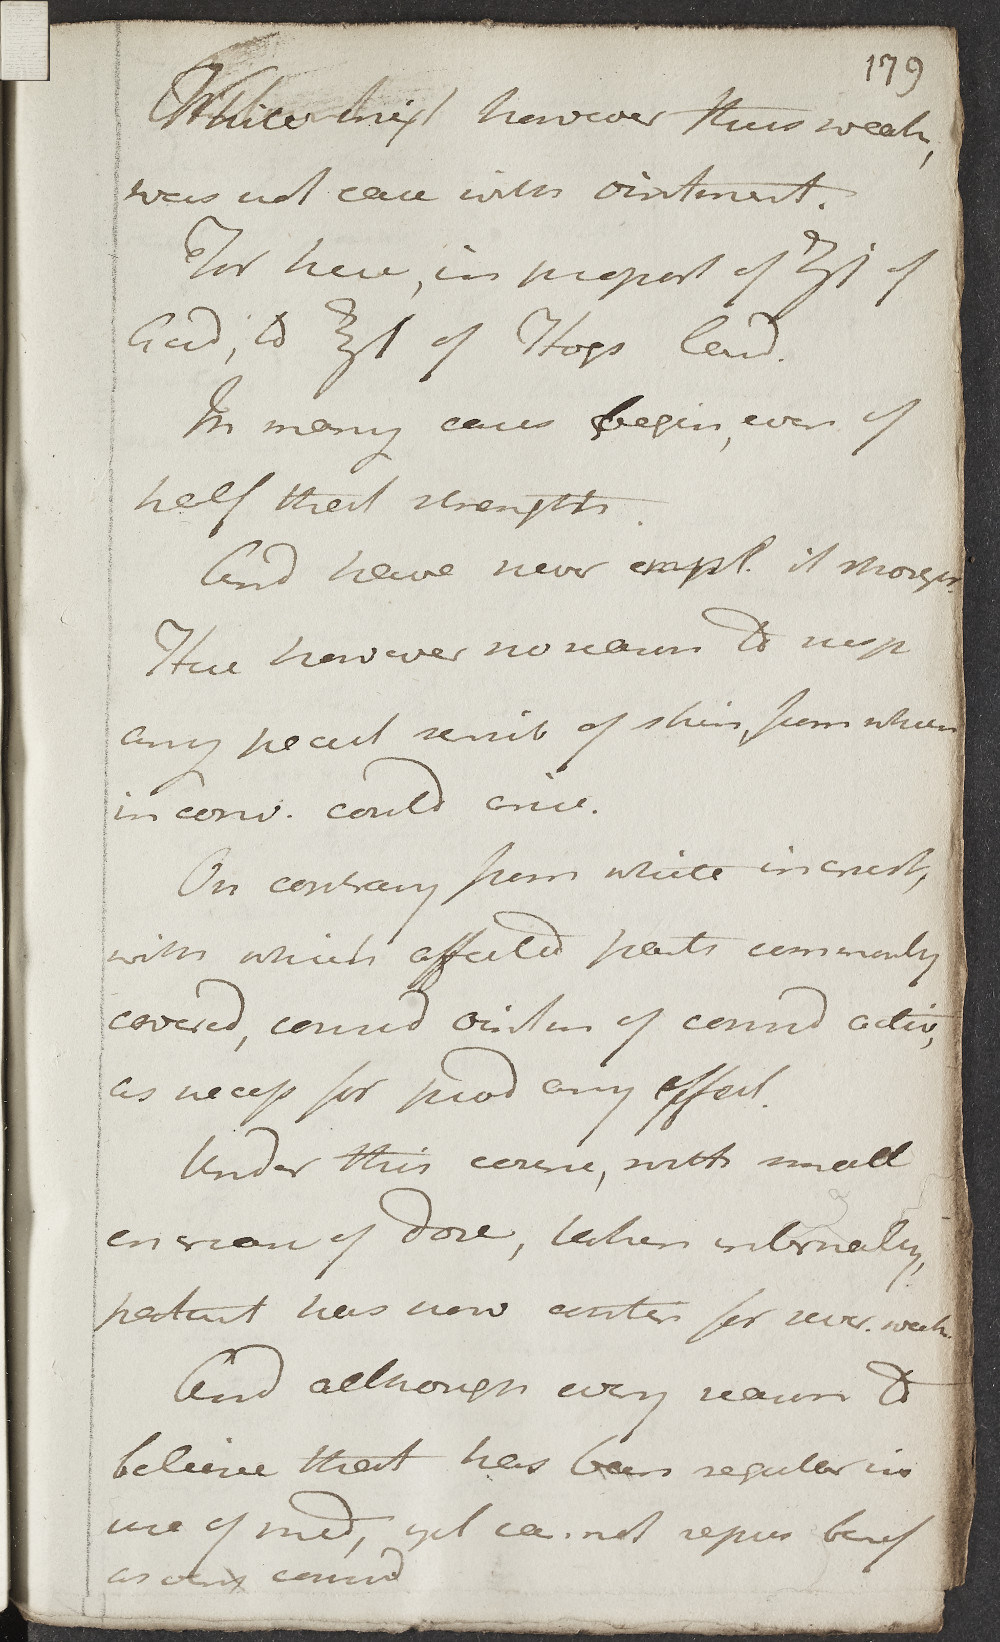 179
While mixt however thus weak,
was not case with ointment.
For here, in proport of ʒj of
Acid, to ℥j of Hogs Lard.
In many cases begin, even of
half that strength.
And have never empl. it stronger.
Here however no reason to susp
any pecul sensib of skin, from whence
inconv. could arise.
On contrary from white incrust,
with which affected parts commonly
covered, consid ointm of consid activ,
as necess for prod any effect.
Under this course, with small
of dose, taken internally,
patient has now contin for sever. week.
And although every reason to
believe that has been regular in
use of med, yet can not repres benef
as very consid